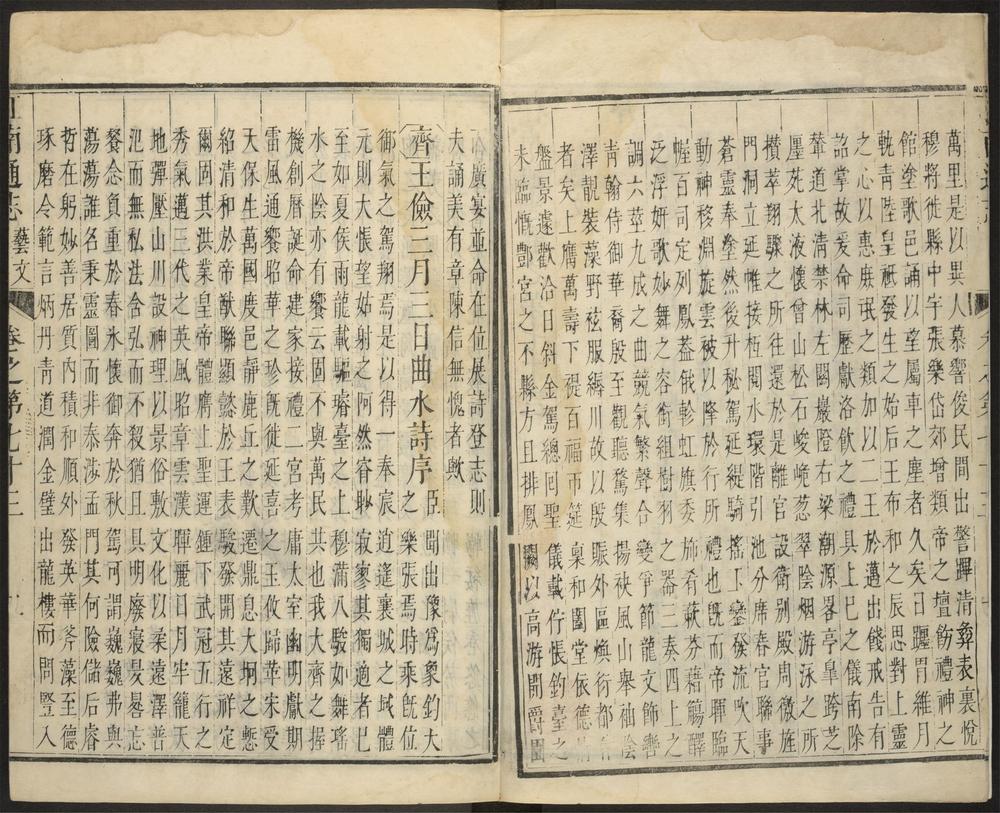 萬里是以異人慕嚮俊民間出警蹕清彝表裏悅
穆將徙縣中宇張樂岱郊增類帝之壇飭禮神之
館塗歌邑誦以望屬車之塵者久矣日躔胃維月
軌青陸皇祇發生之始后王布和之辰思對上靈
之心以惠庶氓之類加以二王於邁出餞戒告有
詔掌故爰命司歷獻洛飲之禮具上巳之儀南除
輦道北清禁林左關巖隥右梁潮源畧亭皐跨芝
廛苑太液懷曾山松石峻垝葱翠陰烟游泳之所
攢萃翔驟之所往還於是離宮設衛别殿周徼旌
門洞立延帷接枑閱水環階引池分席春官聯事
蒼靈奉塗然後升秘駕延緹騎搖玉鑾發流吹天
動神移淵旋雲被以降於行所禮也旣而帝暉臨
幄百司定列鳳蓋俄軫虹旗委旆肴蔌芬藉觴醳
泛浮妍歌妙舞之容銜組樹羽之器三奏四上之
調六莖九成之曲競氣繁聲合變爭節龍文飾轡
青翰侍御華裔殷至觀聽騖集揚袂風山舉袖陰
澤靚裝藻野袨服縟川故以殷賑外區煥衍都
者矣上膺萬壽下禔百福帀筵稟和闔堂依德
盤景遽歡洽日斜金駕總駟聖儀載佇悵釣臺之
未臨慨酆宮之不縣方且排鳳闕以高游開爵園
廣宴並命在位展詩登志則
夫誦美有章陳信無愧者歟
齊王儉三月三日曲水詩序
臣聞出豫爲象鈞大
之樂張焉時乘旣位
御氣之駕翔焉是以得一奉宸逍遙襄城之域體
元則大悵望姑射之阿然窅眇寂寥其獨適者已
至如夏侯兩龍載驅璿臺之上穆滿八駿如舞瑤
水之陰亦有饗云固不與萬民共也我大齊之握
機創曆誕命建家接禮二宮考庸太室幽明獻期
雷風通饗昭華之珍旣徙延喜之玉攸歸革宋受
天保生萬國度邑靜鹿丘之歎遷鼎息大坰之慙
紹清和於帝猷聯顯懿於王表駿發開其遠祥定
爾固其洪業皇帝體膺上聖運鍾下武冠五行之
秀氣邁三代之英風昭章雲漢暉麗日月牢籠天
地彈壓山川設神理以景俗敷文化以柔遠澤普
汜而無私法含弘而不殺猶且具明廢寢昃晷忘
餐念負重於春氷懷御奔於秋駕可謂巍巍弗與
蕩蕩誰名秉靈圖而非泰涉孟門其何險儲后睿
哲在躬妙善居質內積和順外發英華斧藻至德
琢磨令範言炳丹青道潤金璧出龍樓而問豎入
江南通志 藝文 卷之第七十三